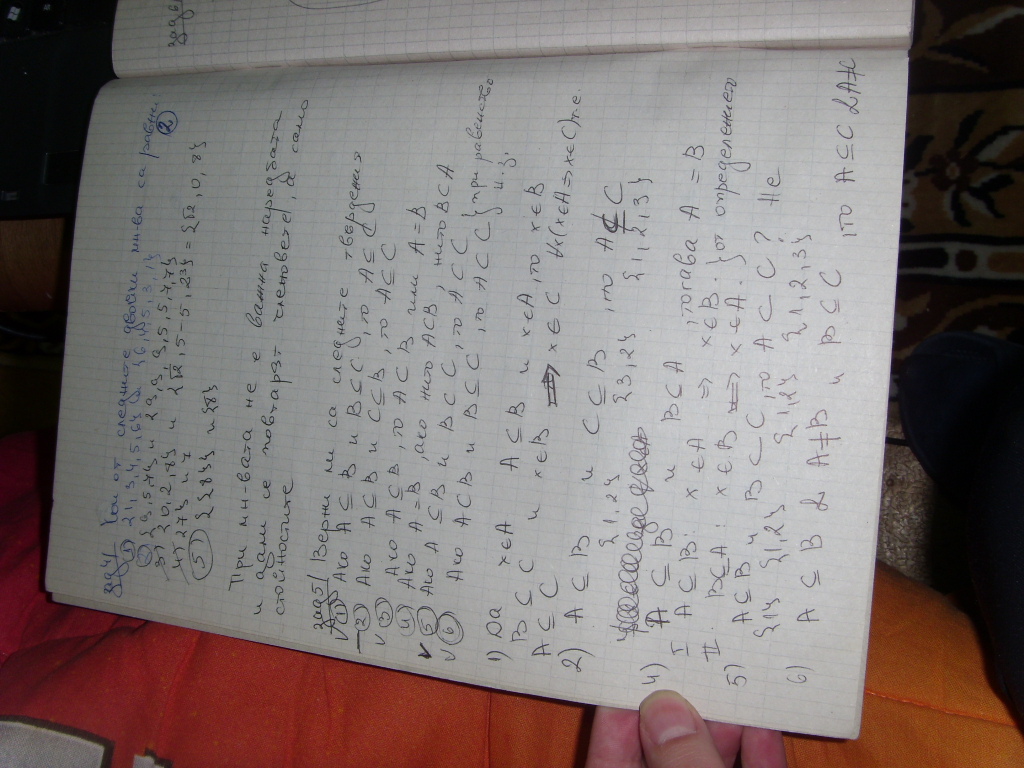 зад 4/ Кои от следните двойки мн-ва са равни:
1) {1,3,4,5,6} и {6,1,5,3,1}
2) {a,5,7} и {a,a,a,5,5,7,7} ②
3) {0,2,8} и {√2,5-5,23} = {√2,0,8}
4) {7} и 7
5) {{8}} и {8}
При мн-вата не е важна наредбата
и дали се повтарят членовете, а само
стойностите
зад 5/ Верни ли са следните твърдения
v 1) Ако A ⊆ B и B ⊆ C, то A ⊆ C
2) Ако A ⊆ B и C ⊆ B, то A ⊆ C
v 3) Ако A ⊆ B, то A ⊂ B или A = B
4) Ако A = B, ако нито A⊂B, нито B⊂A
v 5) Ако A ⊆ B и B ⊂ C, то A ⊂ C
v 6) Ако A ⊂ B и B ⊆ C, то A ⊂ C } при равенство
1) Да x∈A A ⊆ B и x∈A, то x∈B
B ⊆ C и x∈B ⟹ x ∈ C ∀x(x∈A ⇒ x∈C) т.е.
A ⊆ C
2) A ⊆ B и C ⊆ B, то A ⊄ C
{1,2} {3,2} {1,2,3}
4) A ⊆ B и B ⊆ A, тогава A = B
I A ⊆ B: x ∈ A ⇒ x∈B.
II B⊆A: x∈B ⟹ x∈A. } от определението
5) A⊆B и B ⊂ C, то A ⊂ C? Не
{1} {1,2} {1,2} {1,2,3}
6) A ⊆ B & A≠B и B ⊆ C, то A⊆C & A≠C